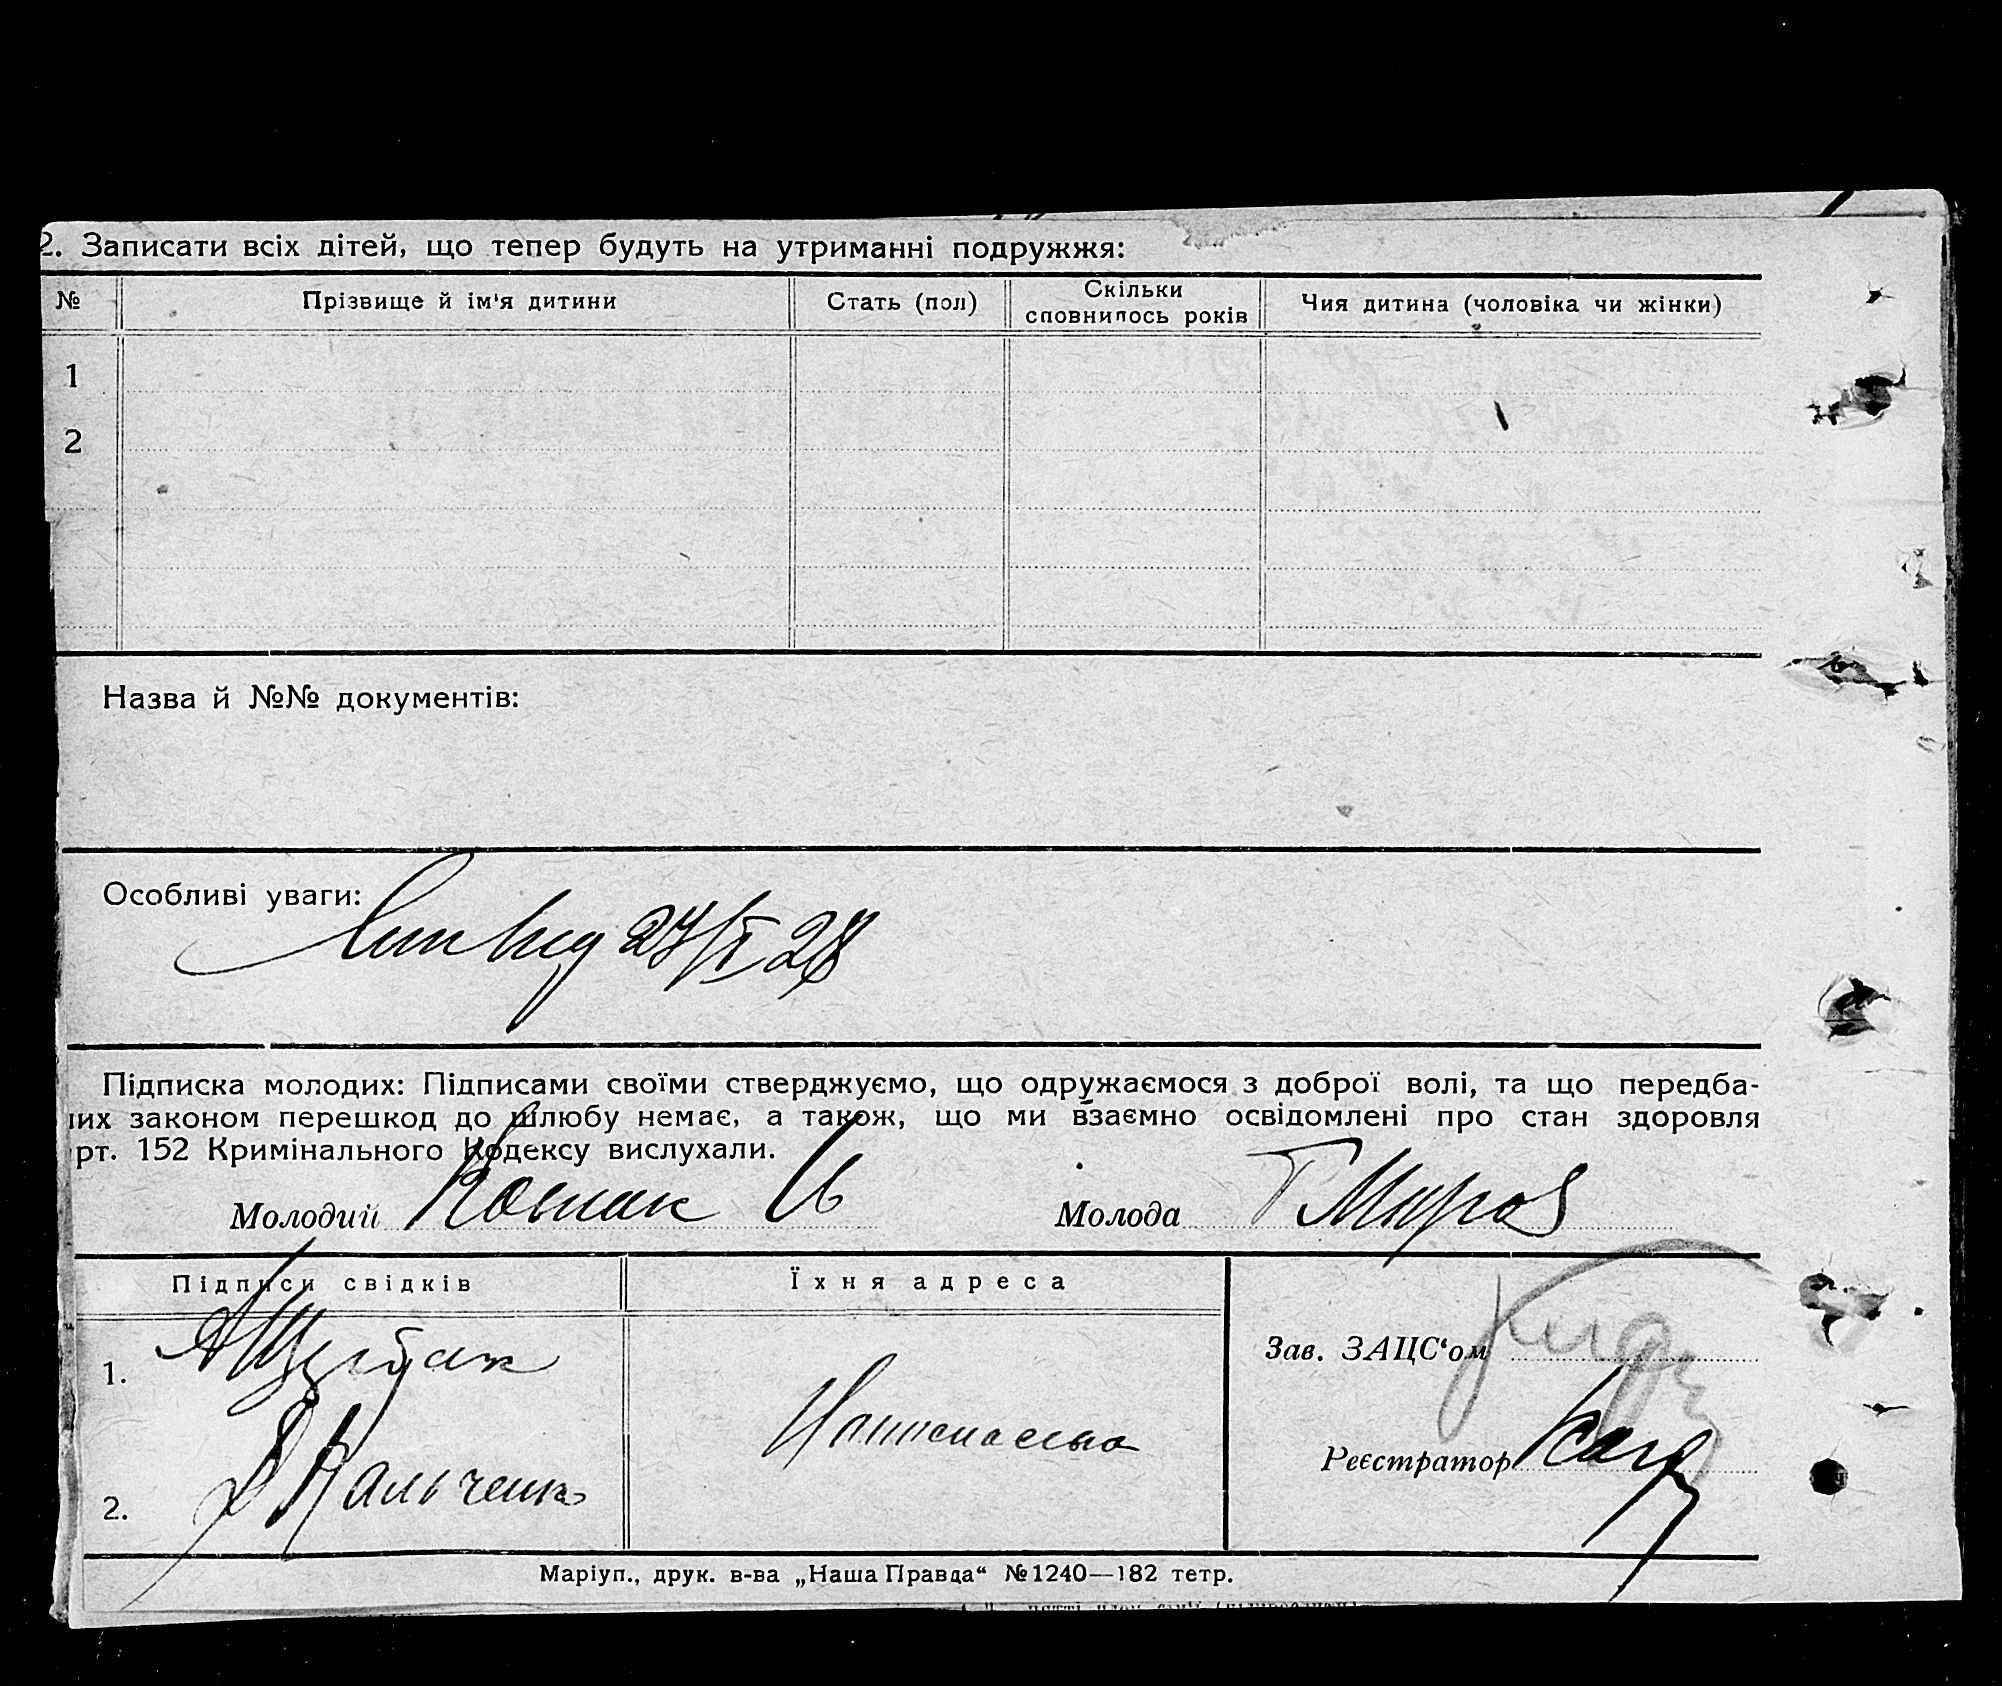 2. Записати всіх дітей, що тепер будуть на утриманні подружжя:
№ Прізвище й ім'я дитини Стать (пол) Скільки сповнилось років Чия дитина (чоловіка чи жінки)
1
2
Назва й №№ документів:
Особливі уваги:
27/X 28
Підписка молодих: Підписами своїми стверджуємо, що одружаємося з доброї волі, та що передба-
их законом перешкод до шлюбу немає, а також, що ми взаємно освідомлені про стан здоровля
рт. 152 Кримінального Кодексу вислухали.
Молодий Молода
Підписи свідків Їхня адреса
Зав. ЗАЦС'ом
1.
Реєстратор
2. Кальченко
Маріуп., друк. в-ва „Наша Правда“ №1240—182 тетр.